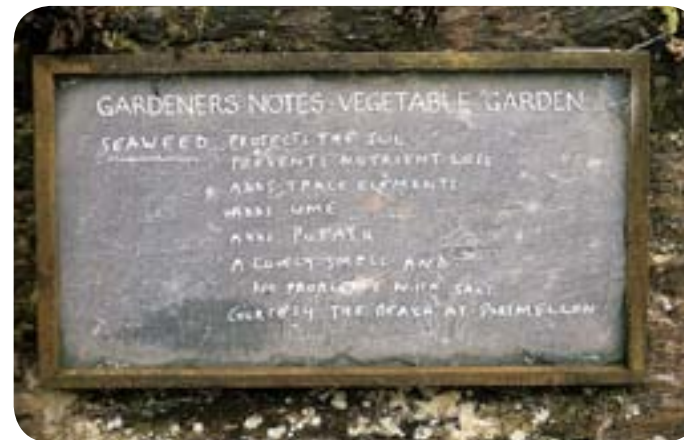 GARDENERS NOTES · VEGETABLE GARDEN
SEAWEED PROTECTS THE SOIL
PREVENTS NUTRIENT LOSS
ADDS TRACE ELEMENTS
ADDS LIME
ADDS
A LOVELY SMELL AND
NO PROBLEMS WITH SALT
COURTESY THE BEACH AT PORTMELLON